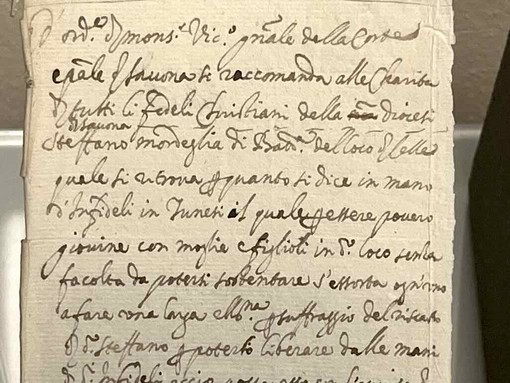 D'ord.e di mons.r Vic.o gñale della Corte
epāle di Savona si raccomanda alle Charita
di tutti li fedeli Christiani della diocesi
di Savona
Steffano mordeglia di Batt.a del loco di Celle
quale si ritrova p quanto si dice in mano
d'Infideli in Tunesi il quale p essere povero
giovine con moglie e figlioli in d.o loco senza
facolta da potersi sostentare s'essorta ogn'uno
a fare una larga ellna. p suffraggio del riscatto
di d.o Steffano p poterlo liberare dalle mani
di d.i Infideli accio